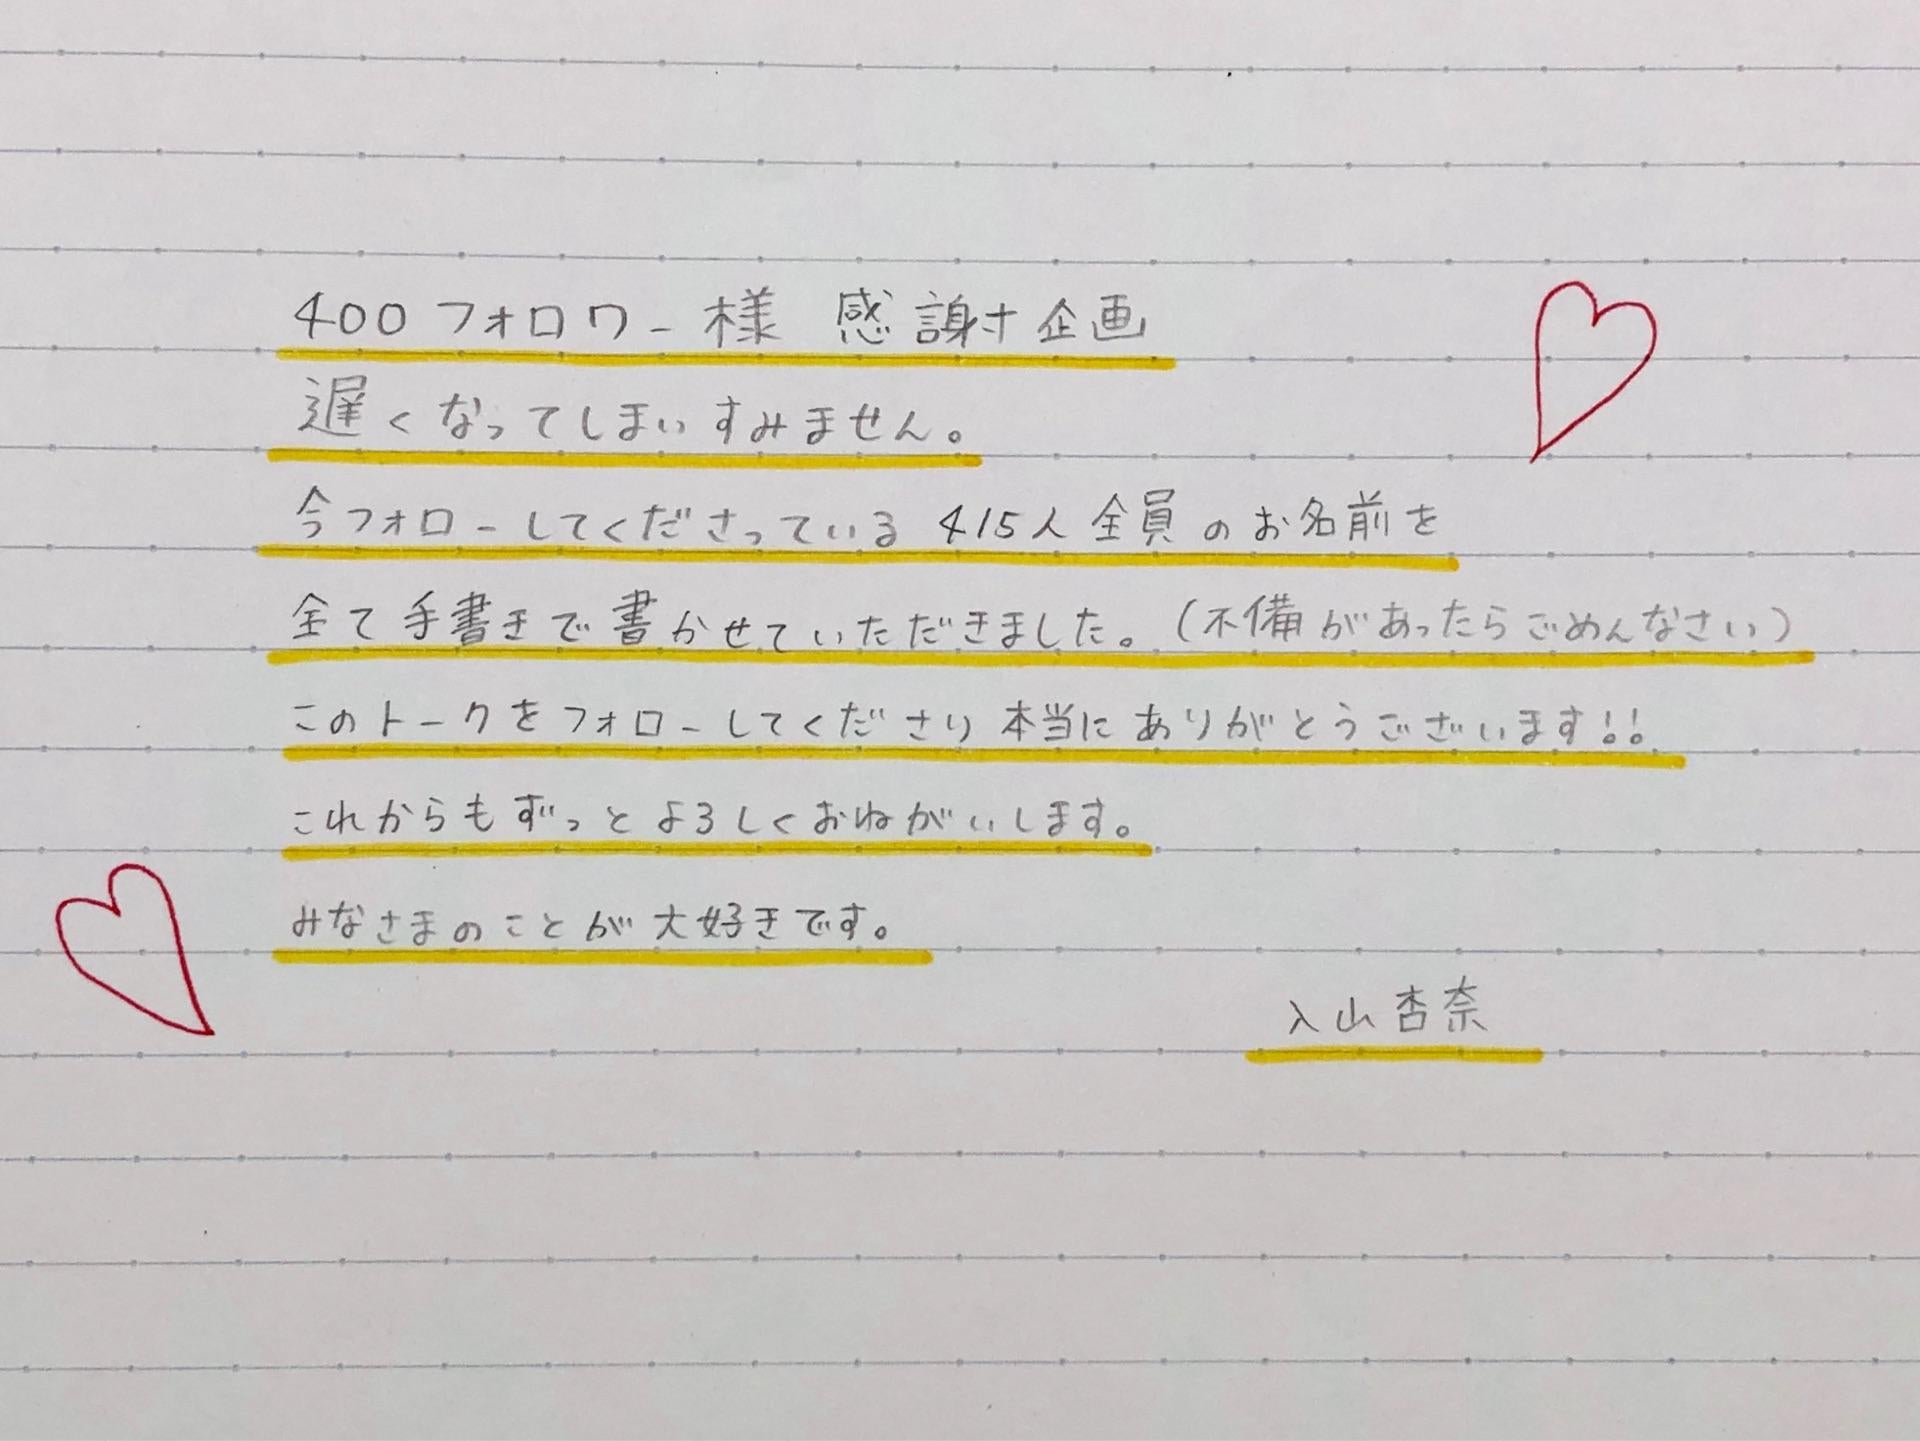 400フォロワー様 感謝企画
遅くなってしまいすみません。
今フォローしてくださっている415人全員のお名前を
全て手書きで書かせていただきました。(不備があったらごめんなさい)
このトークをフォローしてくださり本当にありがとうございます!!
これからもずっとよろしくおねがいします。
みなさまのことが大好きです。
入山杏奈